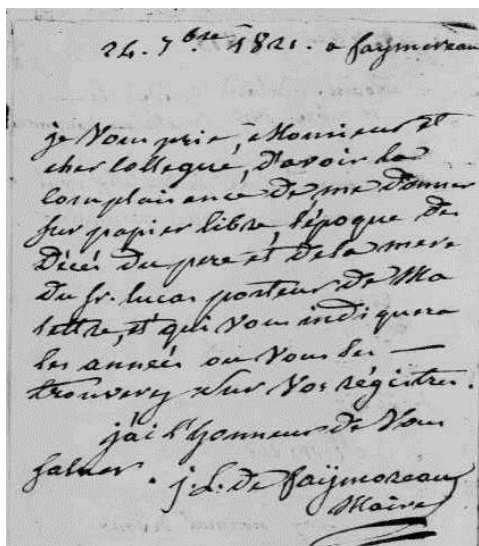 24. 7bre 1821. a faymoreau
je Vous prie, Monsieur et
cher Collegue, d'avoir la
Complaisance de me donner
sur papier libre, l'époque des
Décés du pere et de la mere
du Sr. lucas porteur de Ma
lettre, et qui Vous indiquera
les années ou Vous les —
trouverez sur Vos régistres.
j'ai l'honneur de Vous
saluer. j. L. de faÿmoreau
Maire